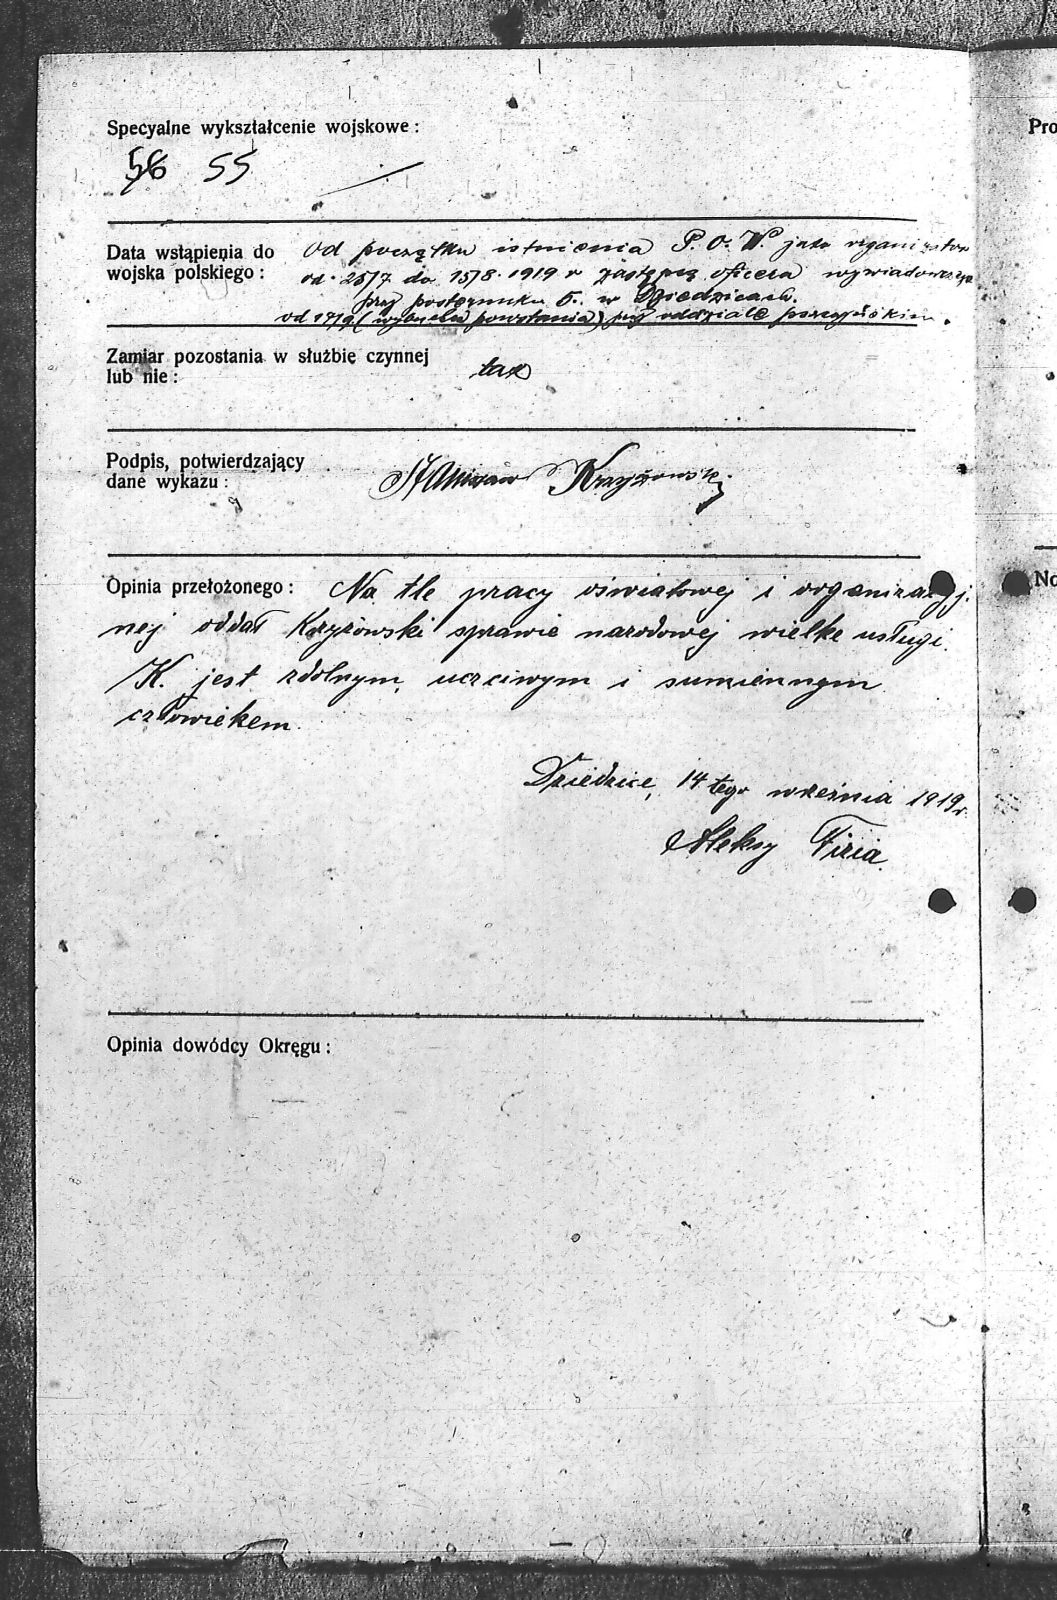 Specyalne wykształcenie wojskowe :
56 55
Pro
Data wstąpienia do
wojska polskiego :
od początku istnienia P. O. W. jako organizator
od 25/7 do 15/8 1919 r zastępcą oficera wywiadowczego
przy posterunku 5. w Dziedzicach.
od 17/8 (wybuchu powstania) przy oddziale
Zamiar pozostania w służbie czynnej
lub nie :
tak
Podpis, potwierdzający
dane wykazu :
Stanisław Krzyżowski
Opinia przełożonego : Na tle pracy oświatowej i organizacyj-
No
nej oddał Krzyżowski sprawie narodowej wielke usługi.
K. jest zdolnym, uczciwym i sumiennym
człowiekem.
Dziedzice, 14tego września 1919 r.
Aleksy Firia.
Opinia dowódcy Okręgu :